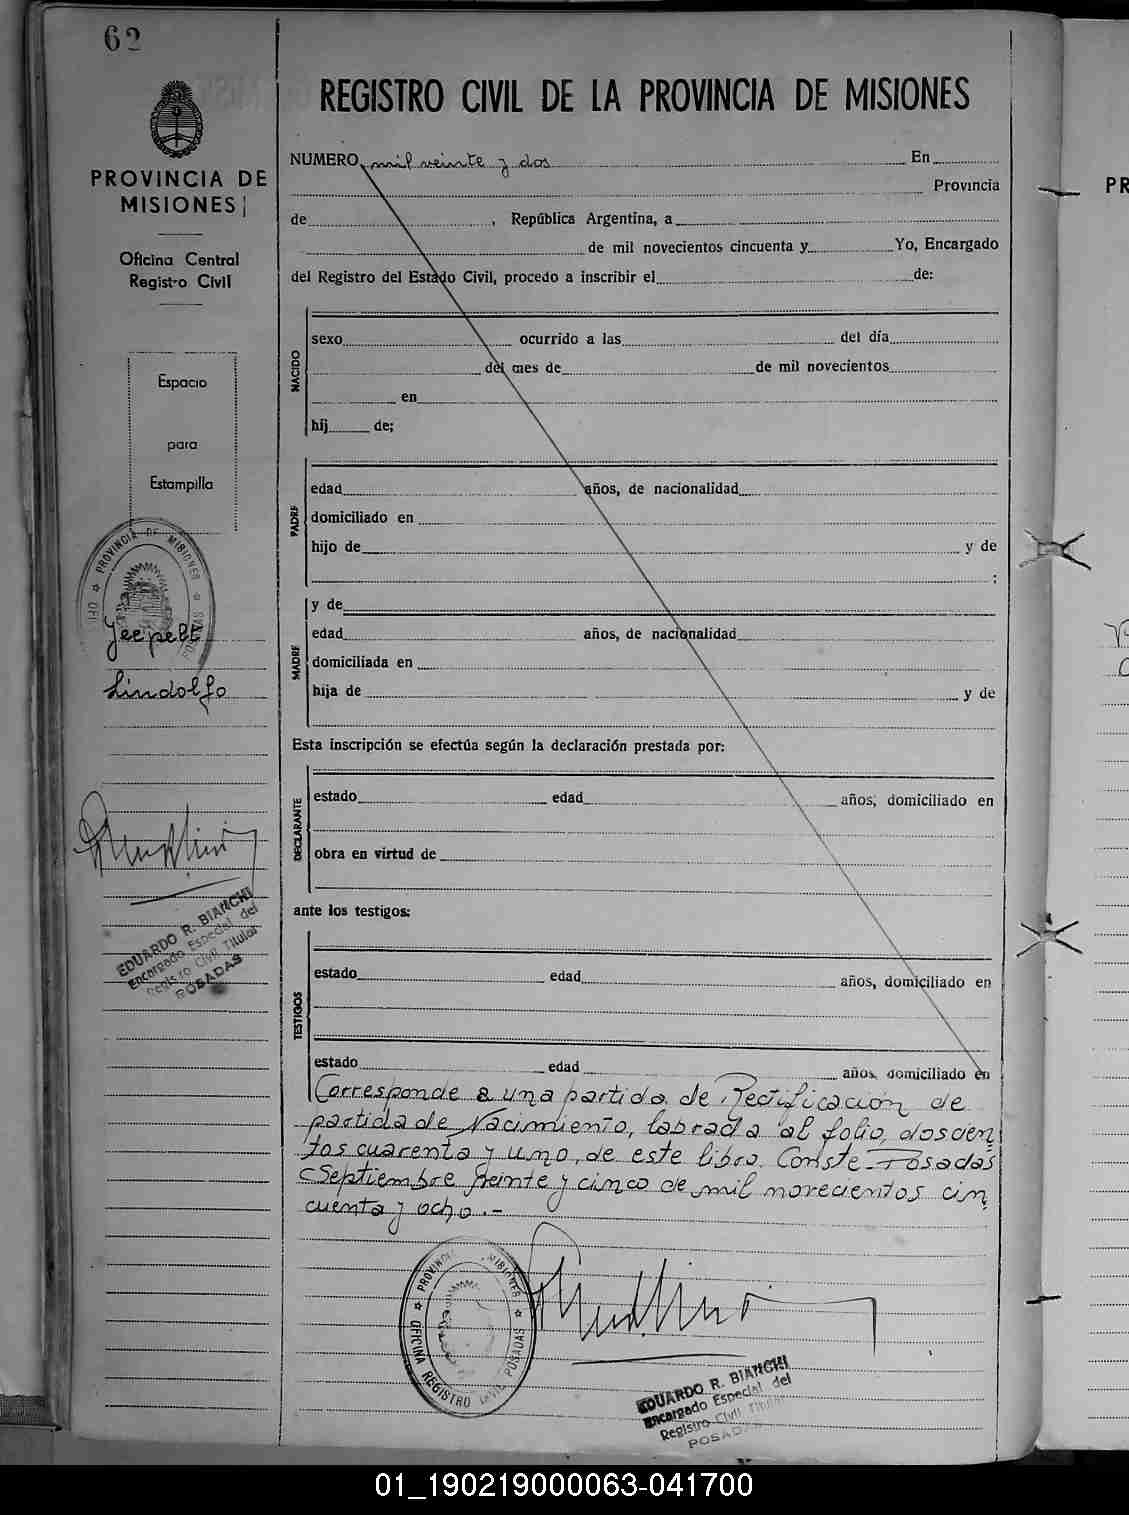 62
REGISTRO CIVIL DE LA PROVINCIA DE MISIONES
PROVINCIA DE
MISIONES
Oficina Central
Regist-o Civil
Espacio
para
Estampilla
PROVINCIA DE MISIONES
Lindolfo
EDUARDO R. BIANCHI
Encargado Especial del
Registro Civil Titular
POSADAS
NUMERO mil veinte y dos En
Provincia
de , República Argentina, a
de mil novecientos cincuenta y Yo, Encargado
del Registro del Estado Civil, procedo a inscribir el de:
NACIDO
sexo ocurrido a las del día
del mes de de mil novecientos
en
hij de;
PADRE
edad años, de nacionalidad
domiciliado en
hijo de y de
;
MADRE
y de
edad años, de nacionalidad
domiciliada en
hija de y de
Esta inscripción se efectúa según la declaración prestada por:
DECLARANTE
estado edad años, domiciliado en
obra en virtud de
ante los testigos:
TESTIGOS
estado edad años, domiciliado en
estado edad años, domiciliado en
Corresponde a una partida de Rectificación de
partida de Nacimiento, labrada al folio, doscien
tos cuarenta y uno, de este libro. Conste Posadas
Septiembre veinte y cinco de mil novecientos cin
cuenta y ocho.-
PROVINCIA MISIONES
OFICINA REGISTRO CIVIL POSADAS
EDUARDO R. BIANCHI
Encargado Especial del
Registro Civil Titular
POSADAS
PR
01_190219000063-041700